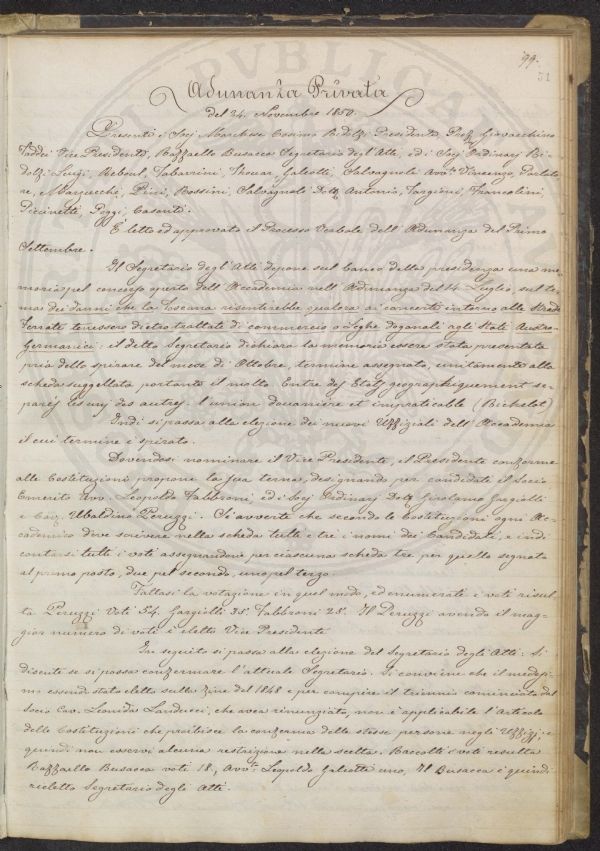 99.
51
Adunanza Privata
del 24. Novembre 1850.
Presenti i Socj Marchese Cosimo Ridolfi Presidente Prof. Giovacchino
Taddei Vice Presidente, Raffaello Busacca Segretario degl'Atti, ed i Socj Ordinarj Ri-
dolfi Luigi, Reboul, Tabarrini, Thouar, Galeotti, Salvagnoli Avv. Vincenzo, Parlato-
re, Marzucchi, Pini, Rossini, Salvagnoli Dott. Antonio, Targioni, Franceschini,
Piccinetti, Poggi, Casanti.
È letto ed approvato il Processo Verbale dell'Adunanza del Primo
Settembre.
Il Segretario degl'Atti depone sul banco della presidenza una me-
moria pel concorso aperto dall'Accademia nell'Adunanza del 14 Luglio, sul te-
ma: dei danni che la Toscana risentirebbe qualora ai concerti intorno alle Strade
ferrate tenessero dietro trattati di commercio o Leghe doganali agli Stati Austro-
Germanici: il detto Segretario dichiara la memoria essere stata presentata
pria dello spirare del mese di Ottobre, termine assegnato, unitamente alla
scheda suggellata portante il motto Entre des Etats geographiquement se-
parés les uns des autres l'union douanière est impraticable (Richelot)
Indi si passa alla elezione dei nuovi Uffiziali dell'Accademia
il cui termine è spirato.
Dovendosi nominare il Vice Presidente, il Presidente conforme
alle Costituzioni propone la sua terna, designando per candidati il Socio
Emerito Avv. Leopoldo Fabbroni, ed i Socj Ordinarj Dott. Girolamo Gargiolli
e Cav. Ubaldino Peruzzi. Si avverte che secondo le Costituzioni ogni Ac-
cademico deve scrivere nella scheda tutti e tre i nomi dei Candidati, e indi
contarsi tutti i voti assegnandone per ciascuna scheda tre per quello segnato
al primo posto, due pel secondo, uno pel terzo.
Fattasi la votazione in quel modo, ed enumerati i voti risul-
ta Peruzzi Voti 54. Gargiolli 35. Fabbroni 25. Il Peruzzi avendo il mag-
gior numero di voti è eletto Vice Presidente
In seguito si passa alla elezione del Segretario degli Atti. Si
discute se si possa confermare l'attuale Segretario. Si conviene che il medesi-
mo essendo stato eletto sulla fine del 1848 e per compire il triennio cominciato dal
Socio Cav. Leonida Landucci, che avea rinunziato, non è applicabile l'Articolo
delle Costituzioni che proibisce la conferma delle stesse persone negli Uffizj, e
quindi non esservi alcuna restrizione nella scelta. Raccolti i voti resulta
Raffaello Busacca voti 18, Avv. Leopoldo Galeotti uno, Il Busacca è quindi
rieletto Segretario degli Atti.